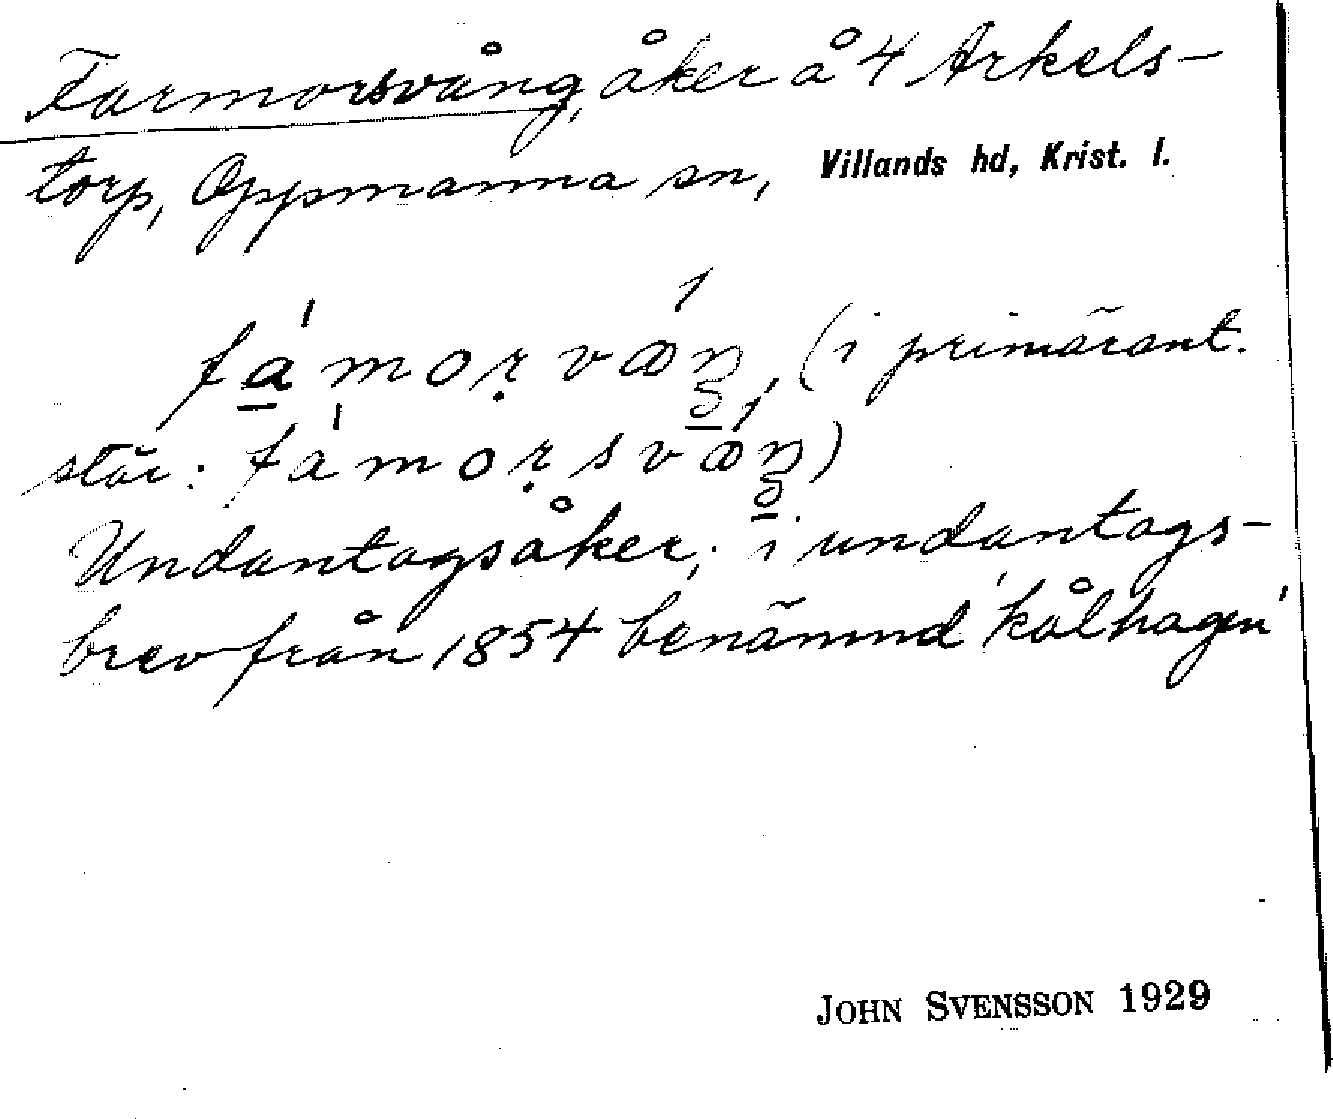 Farmorsvång, åker å 4 Arkels-
torp, Oppmanna sn, Villands hd, Krist. l.
fá̲morv (i primärant.
står: )
Undantagsåker; i undantags-
brev från 1854 benämnd 'kålhagen'
JOHN SVENSSON 1929